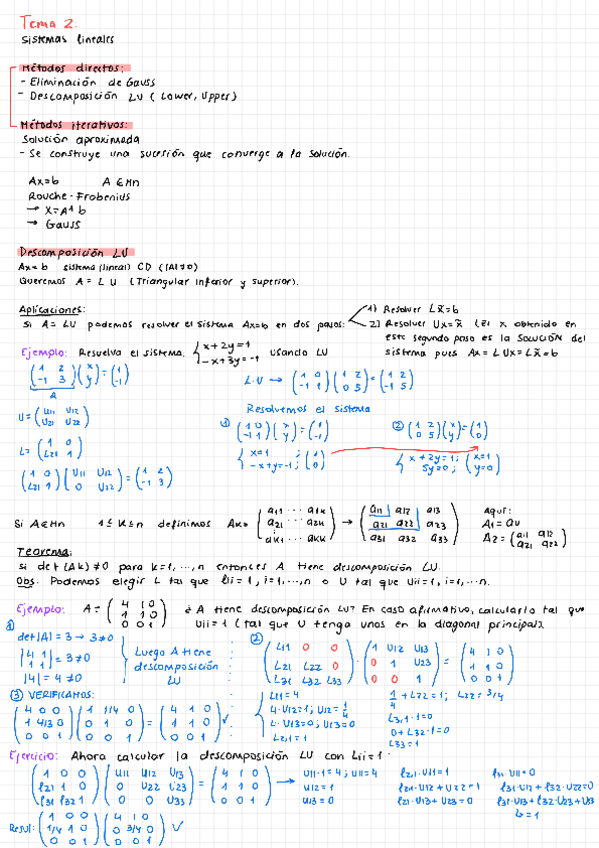 Tema 2.
Sistemas lineales
Métodos directos:
- Eliminación de Gauss
- Descomposición LU ( Lower, Upper)
Métodos iterativos:
Solución aproximada
- Se construye una sucesión que converge a la solución.
Ax=b A ∈ Mn
Rouche - Frobenius
→ X=A⁻¹ b
→ Gauss
Descomposición LU
Ax=b sistema (lineal) CD (|A|≠0)
Queremos A = L U (Triangular inferior y superior).
Aplicaciones:
Si A = LU podemos resolver el sistema Ax=b en dos pasos:
1) Resolver Lx̃=b
2) Resolver Ux=x̃ (El x obtenido en
este segundo paso es la solución del
sistema pues Ax = LUx = Lx̃ = b
Ejemplo: Resuelva el sistema. { x+2y=1 usando LU
-x+3y=-1
(1 2; -1 3)(x; y)=(1; -1)
A
L·U → (1 0; -1 1)(1 2; 0 5)=(1 2; -1 5)
U=(U11 U12; U21 U22)
L=(1 0; L21 1)
(1 0; L21 1)(U11 U12; 0 U22)=(1 2; -1 3)
Resolvemos el sistema
① (1 0; -1 1)(x; y)=(1; -1)
{ x=1 ; -x+y=-1; (1; 0)
② (1 2; 0 5)(x; y)=(1; 0)
{ x+2y=1; 5y=0; (x=1; y=0)
Si A∈Mn 1≤K≤n definimos AK= (a11 ... a1K; a21 ... a2K; aK1 ... aKK) → (a11 a12 a13; a21 a22 a23; a31 a32 a33)
Aquí:
A1=a11
A2=(a11 a12; a21 a22)
Teorema:
Si det(Ak)≠0 para k=1,...,n entonces A tiene descomposición LU.
Obs: Podemos elegir L tal que lii=1, i=1,...,n o U tal que Uii=1, i=1,...,n.
Ejemplo: A = (4 1 0; 1 1 0; 0 0 1) ¿A tiene descomposición LU? En caso afirmativo, calcularlo tal que
Uii=1 (tal que U tenga unos en la diagonal principal).
①
det|A|=3 → 3≠0
|4 1; 1 1|=3≠0
|4|=4≠0
Luego A tiene
descomposición
LU
② (L11 0 0; L21 L22 0; L31 L32 L33)·(1 U12 U13; 0 1 U23; 0 0 1)=(4 1 0; 1 1 0; 0 0 1)
L11=4
4·U12=1; U12=1/4
L·U13=0; U13=0
L2,1=1
1/4+L22=1; L22=3/4
L3,1·1=0
0+L32·1=0
L33=1
③ VERIFICAMOS:
(4 0 0; 1 4/3 0; 0 0 1)(1 1/4 0; 0 1 0; 0 0 1)=(4 1 0; 1 1 0; 0 0 1)✓
Ejercicio: Ahora calcular la descomposición LU con Lii=1.
(1 0 0; l21 1 0; l31 l32 1)(U11 U12 U13; 0 U22 U23; 0 0 U33)=(4 1 0; 1 1 0; 0 0 1) →
U11·1=4; U11=4
U12=1
U13=0
l21·U11=1
l21·U12+U22=1
l21·U13+U23=0
l31·U11=0
l31·U12+l32·U22=0
l31·U13+l32·U23+U33
↳=1
Result: (1 0 0; 1/4 1 0; 0 0 1)(4 1 0; 0 3/4 0; 0 0 1) ✓